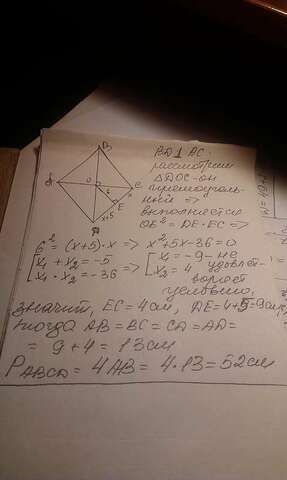 B
A
O
C
6
x
E
x+5
D
BD⊥AC.
рассмотрим
△DOC-он
прямоуголь-
ный =>
выполняется
OE² = DE·EC =>
6² = (x+5)·x => x²+5x-36=0
[x₁+x₂=-5
[x₁·x₂=-36 => [x₁=-9-не
x₂=4 удовлет-
воряет
условию.
значит, EC=4см, DE=4+5=9см
тогда AB=BC=CD=AD=
= 9+4=13см
P ABCD = 4AB=4·13=52см